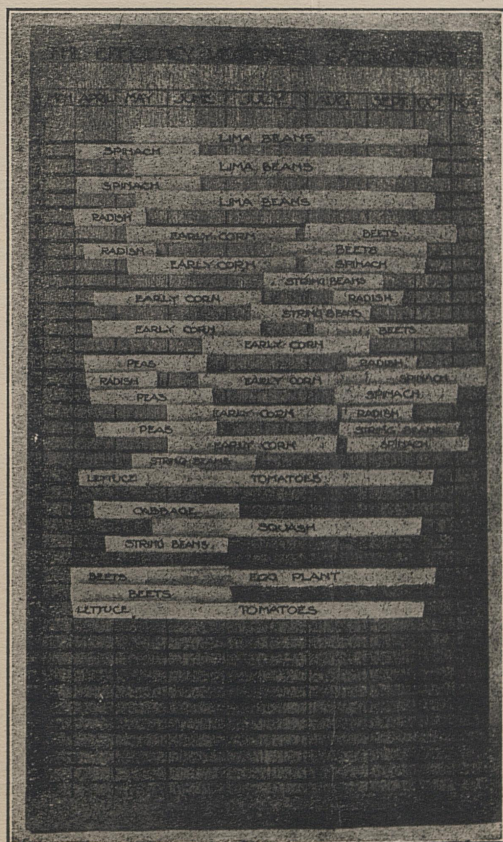 THE EFFICIENCY
APRIL MAY JUNE JULY AUG. SEPT. OCT. NOV.
LIMA BEANS
SPINACH
LIMA BEANS
SPINACH
LIMA BEANS
RADISH
EARLY CORN BEETS
RADISH BEETS
EARLY CORN SPINACH
STRING BEANS
EARLY CORN RADISH
STRING BEANS
EARLY CORN BEETS
EARLY CORN
PEAS RADISH
RADISH EARLY CORN SPINACH
PEAS SPINACH
EARLY CORN RADISH
PEAS STRING BEANS
EARLY CORN SPINACH
STRING BEANS
LETTUCE TOMATOES
CABBAGE
SQUASH
STRING BEANS
BEETS EGG PLANT
BEETS
LETTUCE TOMATOES